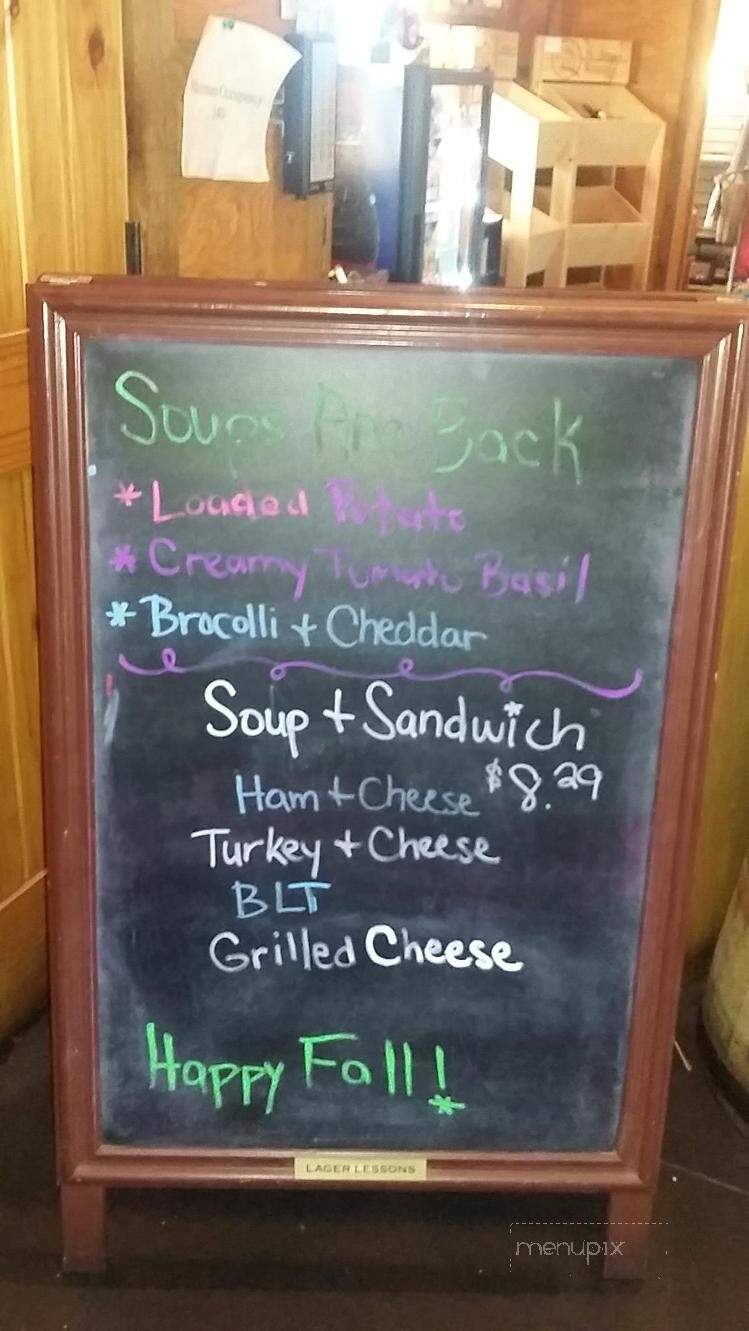 Maximum Occupancy
Soups Are Back
* Loaded Potato
* Creamy Tomato Basil
* Brocolli + Cheddar
Soup + Sandwich
$8.29
Ham + Cheese
Turkey + Cheese
BLT
Grilled Cheese
Happy Fall!
LAGER LESSONS
menupix